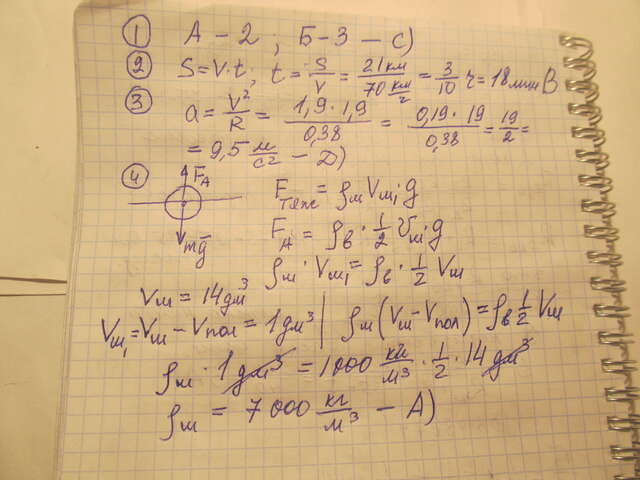 ① А - 2 ; Б - 3 - с)
② S = V · t ; t = S/V = 21 км / 70 км/ч = 3/10 ч = 18 мин В
③ a = V²/R = 1,9 · 1,9 / 0,38 = 0,19 · 19 / 0,38 = 19/2 =
= 9,5 м/с² - Д)
④ F_A
mg⃗
F_тяж = ρ_м V_ш₁ g
F_A = ρ_в · 1/2 V_ш g
ρ_м · V_ш₁ = ρ_в · 1/2 V_ш
V_ш = 14 дм³
V_ш₁ = V_ш - V_пол = 1 дм³ | ρ_м (V_ш - V_пол) = ρ_в 1/2 V_ш
ρ_м · 1 дм³ = 1000 кг/м³ · 1/2 · 14 дм³
ρ_м = 7000 кг/м³ - А)